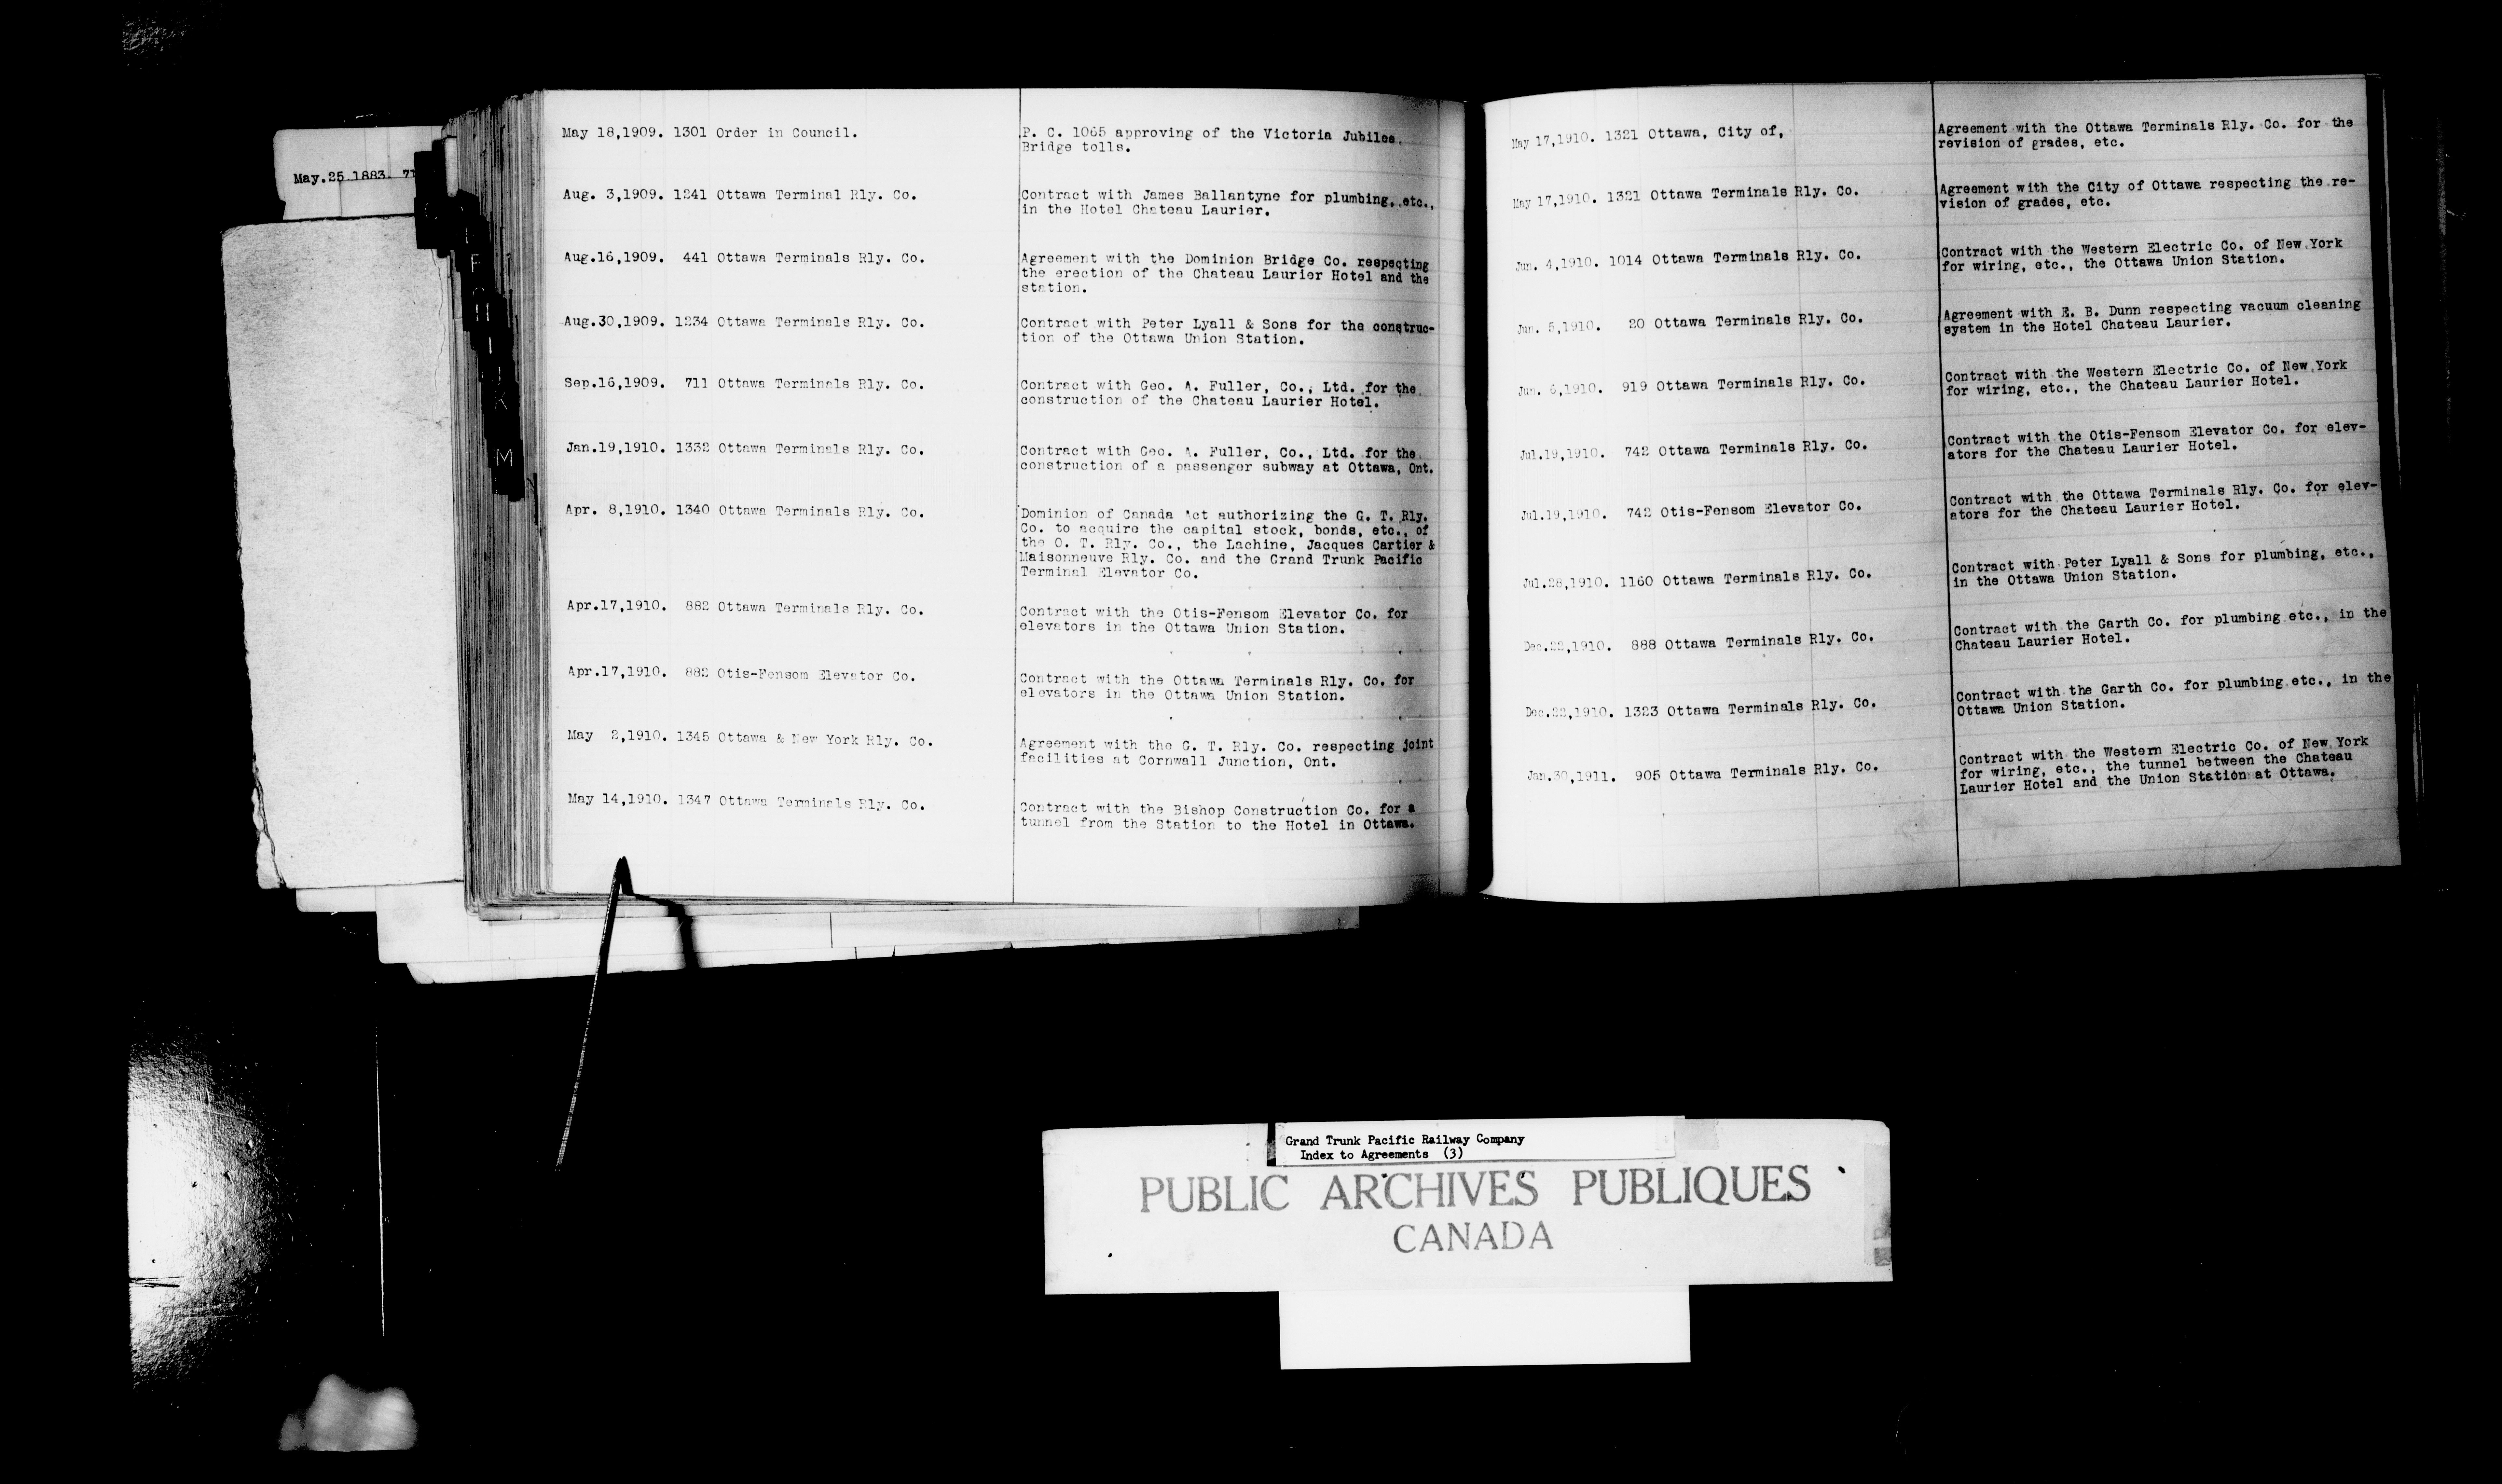 May.25 1883. 71
F
H
I
J
K
M
May 18,1909. 1301 Order in Council.
P. C. 1065 approving of the Victoria Jubilee
Bridge tolls.
Aug. 3,1909. 1241 Ottawa Terminal Rly. Co.
Contract with James Ballantyne for plumbing, etc.,
in the Hotel Chateau Laurier.
Aug.16,1909. 441 Ottawa Terminals Rly. Co.
Agreement with the Dominion Bridge Co. respecting
the erection of the Chateau Laurier Hotel and the
station.
Aug.30,1909. 1234 Ottawa Terminals Rly. Co.
Contract with Peter Lyall & Sons for the construc-
tion of the Ottawa Union Station.
Sep.16,1909. 711 Ottawa Terminals Rly. Co.
Contract with Geo. A. Fuller, Co., Ltd. for the
construction of the Chateau Laurier Hotel.
Jan.19,1910. 1332 Ottawa Terminals Rly. Co.
Contract with Geo. A. Fuller, Co., Ltd. for the
construction of a passenger subway at Ottawa, Ont.
Apr. 8,1910. 1340 Ottawa Terminals Rly. Co.
Dominion of Canada Act authorizing the G. T. Rly.
Co. to acquire the capital stock, bonds, etc., of
the O. T. Rly. Co., the Lachine, Jacques Cartier &
Maisonneuve Rly. Co. and the Grand Trunk Pacific
Terminal Elevator Co.
Apr.17,1910. 882 Ottawa Terminals Rly. Co.
Contract with the Otis-Fensom Elevator Co. for
elevators in the Ottawa Union Station.
Apr.17,1910. 882 Otis-Fensom Elevator Co.
Contract with the Ottawa Terminals Rly. Co. for
elevators in the Ottawa Union Station.
May 2,1910. 1345 Ottawa & New York Rly. Co.
Agreement with the G. T. Rly. Co. respecting joint
facilities at Cornwall Junction, Ont.
May 14,1910. 1347 Ottawa Terminals Rly. Co.
Contract with the Bishop Construction Co. for a
tunnel from the Station to the Hotel in Ottawa.
May 17,1910. 1321 Ottawa, City of,
Agreement with the Ottawa Terminals Rly. Co. for the
revision of grades, etc.
May 17,1910. 1321 Ottawa Terminals Rly. Co.
Agreement with the City of Ottawa respecting the re-
vision of grades, etc.
Jun. 4,1910. 1014 Ottawa Terminals Rly. Co.
Contract with the Western Electric Co. of New York
for wiring, etc., the Ottawa Union Station.
Jun. 5,1910. 20 Ottawa Terminals Rly. Co.
Agreement with E. B. Dunn respecting vacuum cleaning
system in the Hotel Chateau Laurier.
Jun. 6,1910. 919 Ottawa Terminals Rly. Co.
Contract with the Western Electric Co. of New York
for wiring, etc., the Chateau Laurier Hotel.
Jul.19,1910. 742 Ottawa Terminals Rly. Co.
Contract with the Otis-Fensom Elevator Co. for elev-
ators for the Chateau Laurier Hotel.
Jul.19,1910. 742 Otis-Fensom Elevator Co.
Contract with the Ottawa Terminals Rly. Co. for elev-
ators for the Chateau Laurier Hotel.
Jul.28,1910. 1160 Ottawa Terminals Rly. Co.
Contract with Peter Lyall & Sons for plumbing, etc.,
in the Ottawa Union Station.
Dec.22,1910. 888 Ottawa Terminals Rly. Co.
Contract with the Garth Co. for plumbing etc., in the
Chateau Laurier Hotel.
Dec.22,1910. 1323 Ottawa Terminals Rly. Co.
Contract with the Garth Co. for plumbing etc., in the
Ottawa Union Station.
Jan.30,1911. 905 Ottawa Terminals Rly. Co.
Contract with the Western Electric Co. of New York
for wiring, etc., the tunnel between the Chateau
Laurier Hotel and the Union Station at Ottawa.
Grand Trunk Pacific Railway Company
Index to Agreements (3)
PUBLIC ARCHIVES PUBLIQUES
CANADA